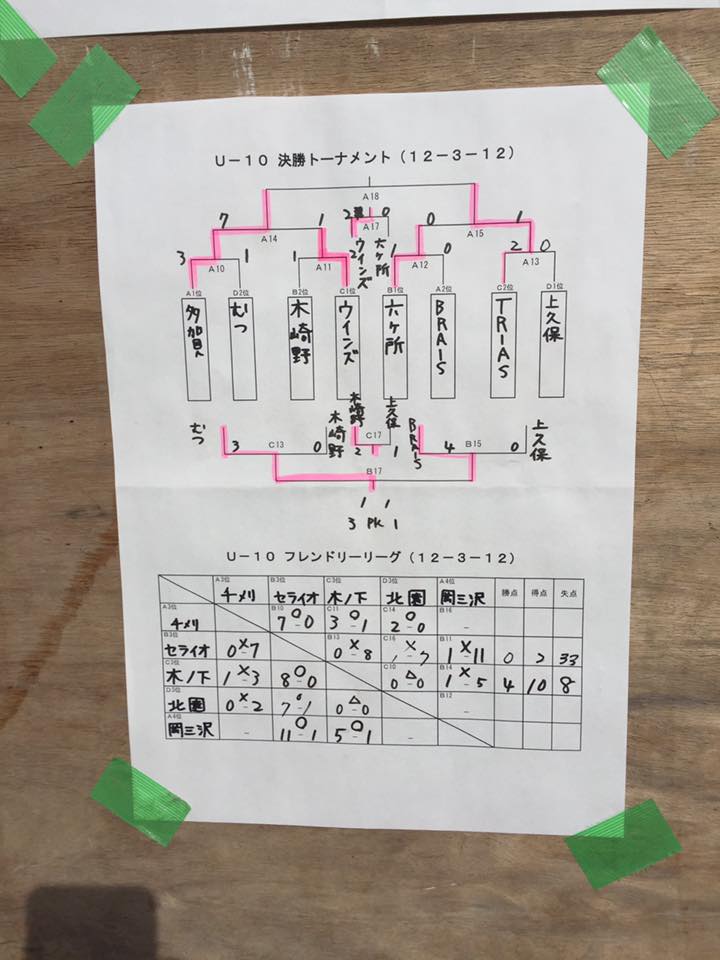 U－10 決勝トーナメント（12－3－12）
A18
7 1 2 0 0 1
A14 A17 A15
ウインズ 六ヶ所
3 1 1 2 1 0 2 0
A10 A11 A12 A13
A1位 D2位 B3位 C1位 B1位 A2位 C2位 D1位
むつ 木崎野 ウインズ 六ヶ所 BRAIS TRIAS 上久保
むつ 木崎野 木崎野 上久保 BRAIS 上久保
3 C13 0 2 C17 1 4 B15 0
B17
1 1
3 PK 1
U－10 フレンドリーリーグ（12－3－12）
A3位 B3位 C3位 D3位 A4位
チメリ セライオ 木ノ下 北園 岡三沢 勝点 得点 失点
A3位 B10 C11 C14 B16
チメリ 7○0 3○1 2○0 －
B3位 B13 C16 B11
セライオ 0×7 0×8 1×7 1×11 0 2 33
C3位 C10 B14
木ノ下 1×3 8○0 0△0 1×5 4 10 8
D3位 B12
北園 0×2 7○1 0△0 －
A4位
岡三沢 － 11○1 5○1 －